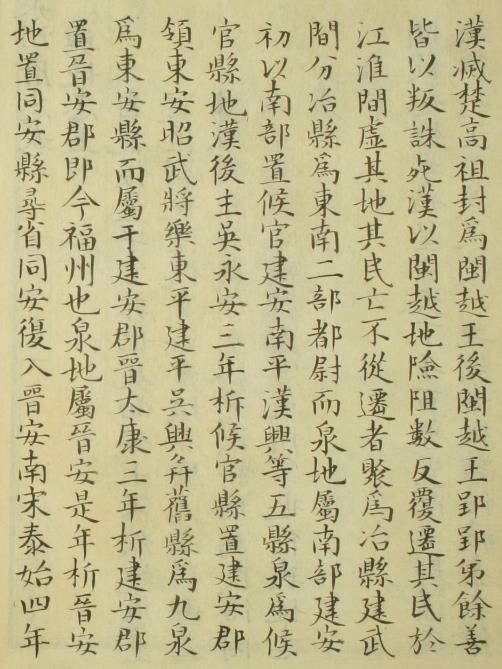 漢滅楚高祖封爲閩越王後閩越王郢郢弟餘善
皆以叛誅死漢以閩越地險阻數反覆遷其民於
江淮間虛其地其民亡不從遷者聚爲冶縣建武
間分冶縣爲東南二部都尉而泉地屬南部建安
初以南部置候官建安南平漢興等五縣泉爲候
官縣地漢後主吳永安三年析候官縣置建安郡
領東安昭武將樂東平建平吳興并舊縣爲九泉
爲東安縣而屬于建安郡晉太康三年析建安郡
置晉安郡即今福州也泉地屬晉安是年析晉安
地置同安縣尋省同安復入晉安南宋泰始四年